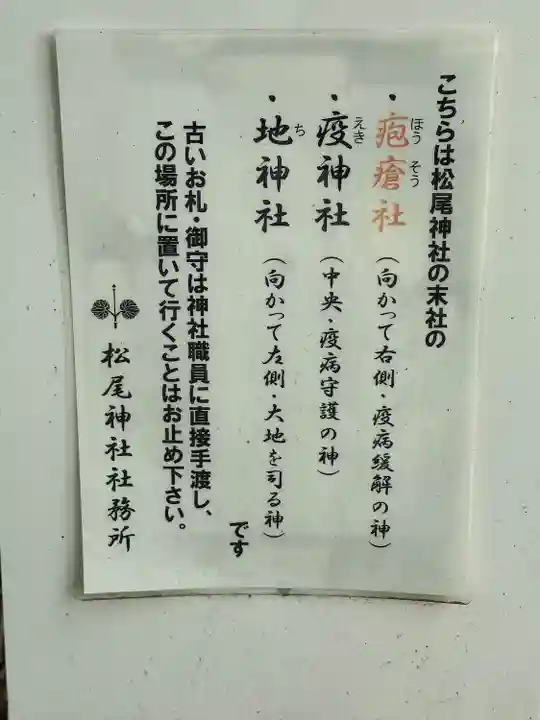 こちらは松尾神社の末社の
・疱瘡社（向かって右側・疫病緩解の神）
ほう そう
・疫神社（中央・疫病守護の神）
えき
・地神社（向かって左側・大地を司る神）
ち
です
古いお札・御守は神社職員に直接手渡し、
この場所に置いて行くことはお止め下さい。
松尾神社社務所